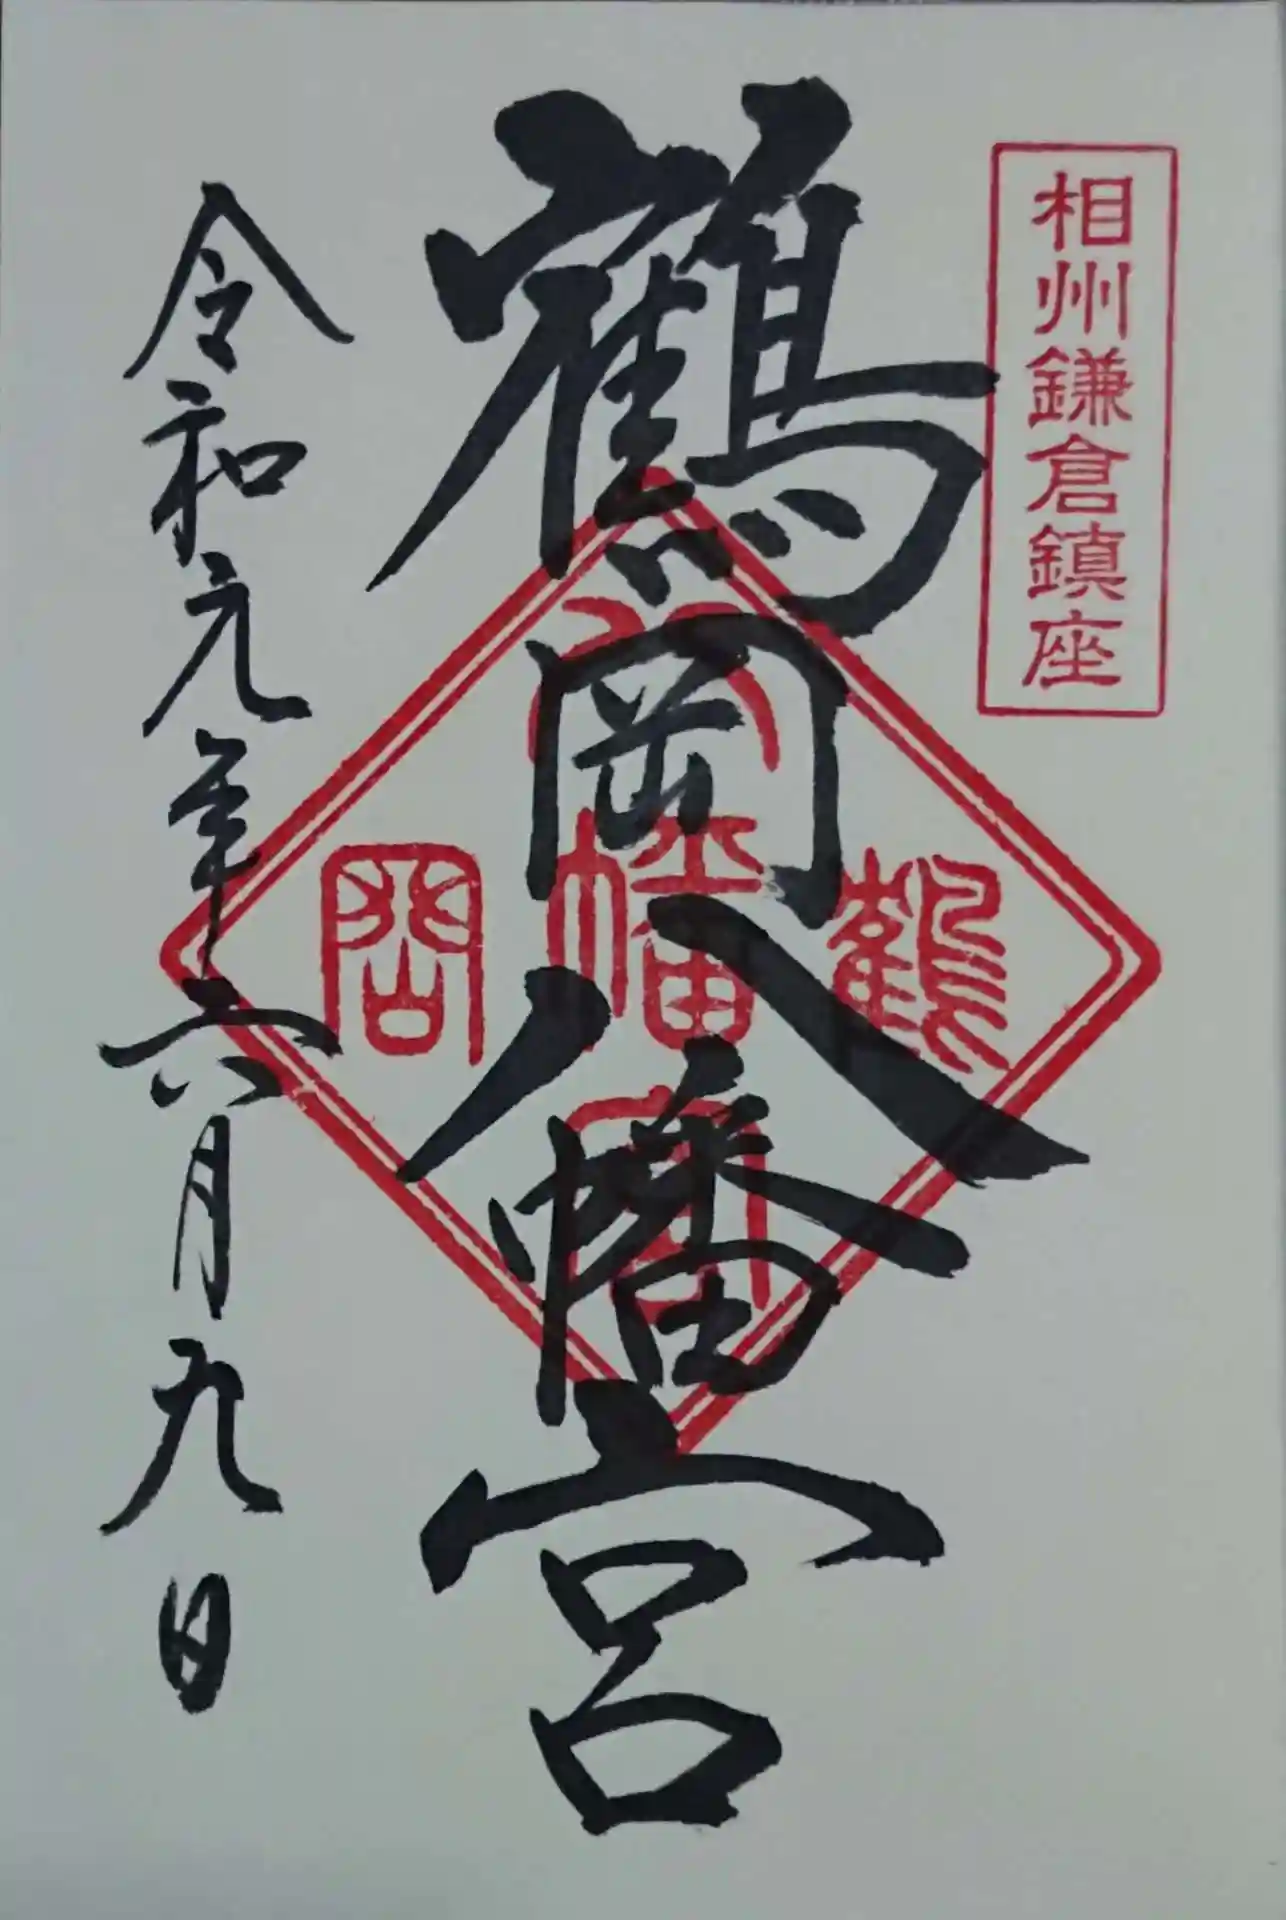 相州鎌倉鎮座
鶴岡八幡宮
鶴
八幡宮
岡
令和元年六月九日